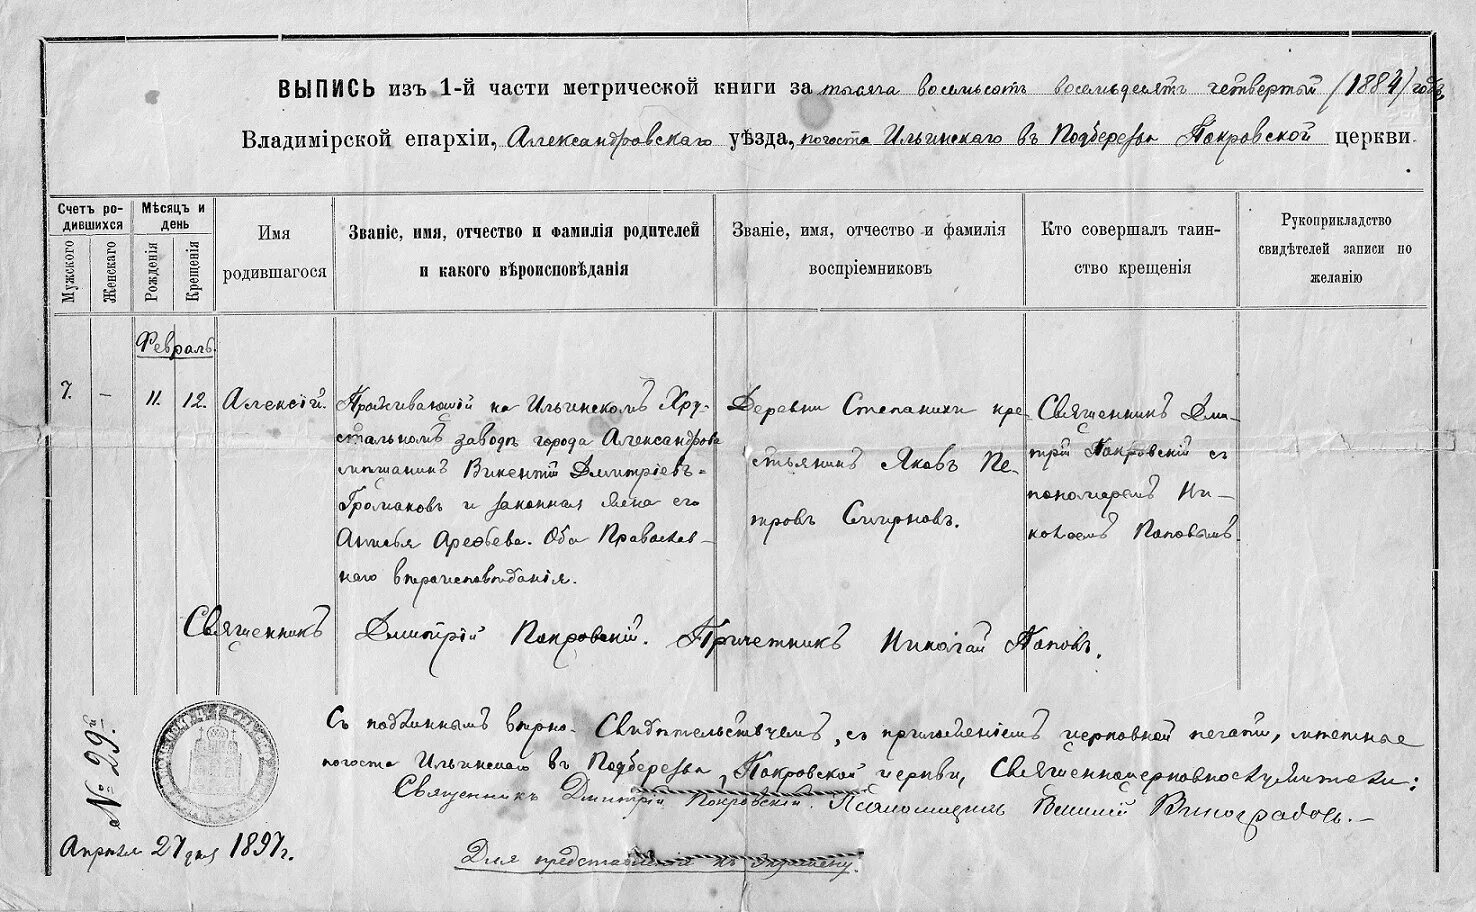 ВЫПИСЬ изъ 1-й части метрической книги за тысяча восемьсотъ восемьдесятъ четвертый /1884/ годъ,
Владимірской епархіи, Александровскаго уѣзда, погоста Ильинскаго въ Подберезьи Покровской церкви.
Счетъ ро-
дившихся
Мужского
Женскаго
Мѣсяцъ и
день
Рожденія
Крещенія
Имя
родившагося
Званіе, имя, отчество и фамилія родителей
и какого вѣроисповѣданія
Званіе, имя, отчество и фамилія
воспріемниковъ
Кто совершалъ таин-
ство крещенія
Рукоприкладство
свидѣтелей записи по
желанію
Февраль.
7.
–
11.
12.
Алексій.
Проживающій на Ильинскомъ Хру-
стальномъ заводѣ города Александрова
мѣщанинъ Викентій Дмитріевъ
Громаковъ и законная жена его
Арефьева. Оба Православ-
наго вѣроисповѣданія.
Деревни Степанихи кре-
стьянинъ Яковъ Пе-
тровъ Смирновъ.
Священникъ Дми-
трій Покровскій съ
пономаремъ Ни-
колаемъ Поповымъ.
Священникъ Дмитрій Покровскій. Причетникъ Николай Поповъ.
С подлиннымъ вѣрно. Свидѣтельствуемъ, съ приложеніемъ церковной печати,
погоста Ильинскаго въ Подберезьи, Покровской церкви, Священноцерковнослужители:
Священникъ Дмитрій Покровскій. Псаломщикъ Василій Виноградовъ.
№ 29й.
Апрѣля 27 дня 1897г.
Для представленія къ экзамену.